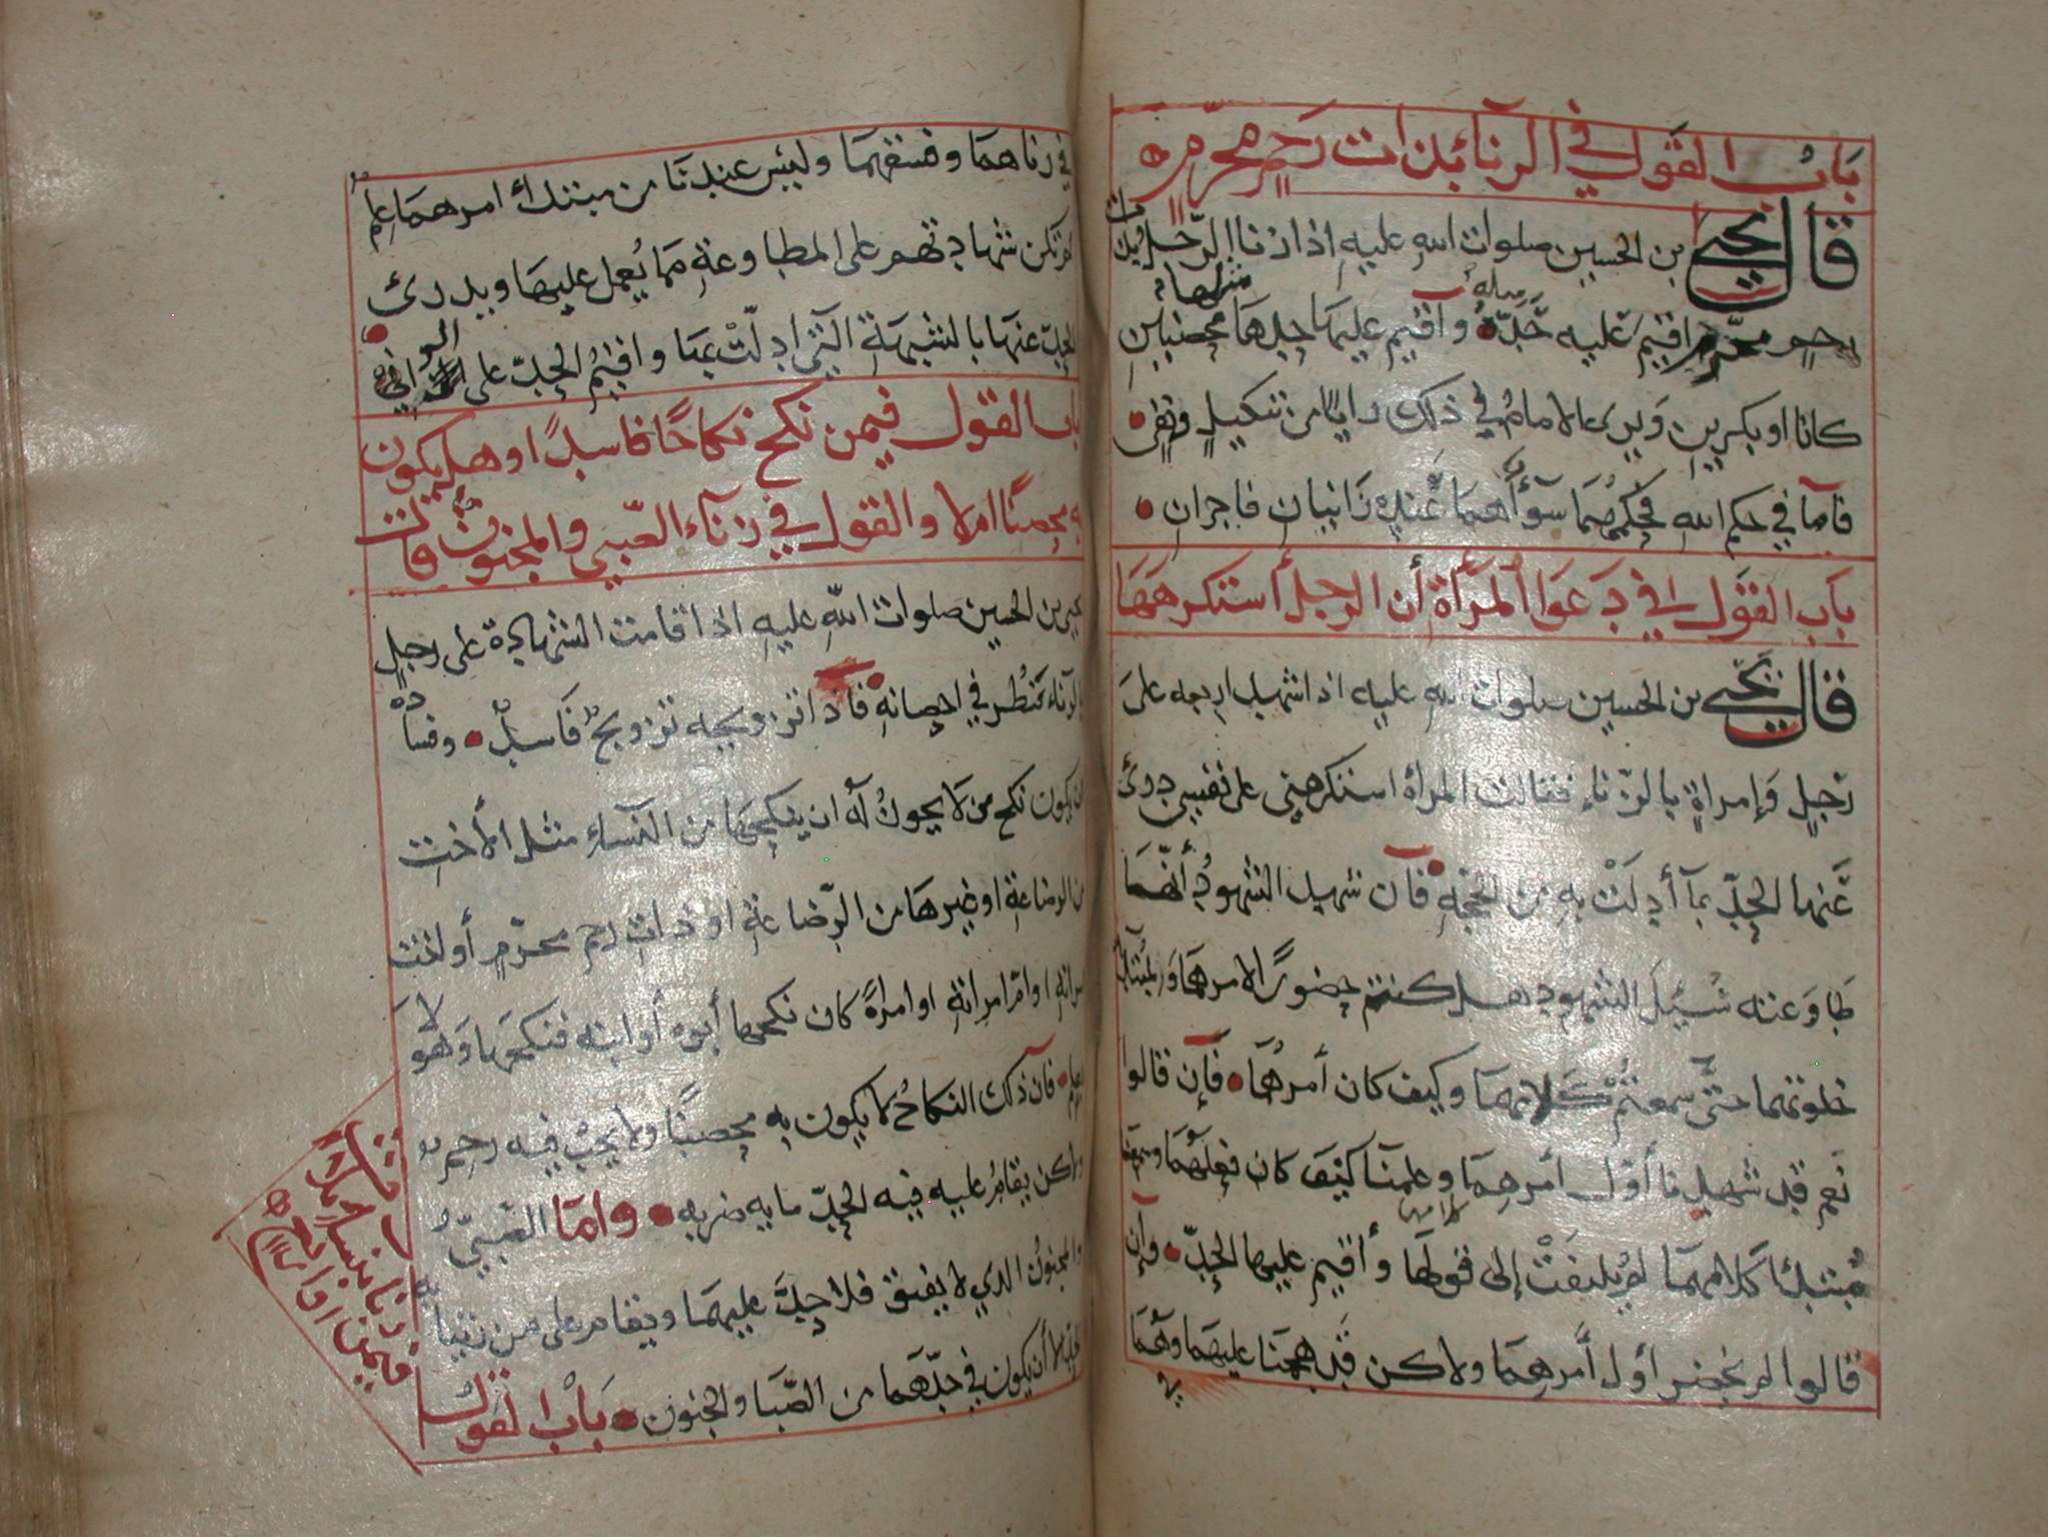 باب القول في الزناء بذات رحم محرم
قال يحيى بن الحسين صلوات الله عليه اذا زنا الرجل بذات
رحم محرم اقيم عليه حده وأقيم عليها حدها محصنين
كانا او بكرين ويرى الامام في ذلك رايا من تنكيل ونفي
فاما في حكم الله فحكمهما سوآء هما عنده زانيان فاجران
باب القول في دعوا المرأة أن الرجل أستكرهها
قال يحيى بن الحسين صلوات الله عليه اذا شهد اربعه على
رجل وإمراة بالزناء فقالت المرأة استكرهني على نفسي درئ
عنها الحد بمآ أدلت به من الحجه فان شهد الشهود أنهما
طاوعته سئل الشهود هل كنتم حضورا لامرهما ولمبتدا
خلوتهما حتى سمعتم كلامهما وكيف كان أمرهما فإن قالوا
نعم قد شهدنا أول أمرهما وعلمنا كيف كان فعلهما وسمعنا
مبتدئا كلامهما لم يلتفت إلى قولها وأقيم عليها الحد وإن
قالوا لم نحضر اول أمرهما ولاكن قد هجمنا عليهما وهما
في زناهما وفسقهما وليس عندنا من مبتدأ امرهما علم
لم تكن شهادتهم على المطاوعة مما يعمل عليها ويدرئ
الحد عنها بالشبهة التي ادلت بها واقيم الحد على الزاني
باب القول فيمن نكح نكاحا فاسدا وهل يكون
به محصنا ام لا والقول في زنآء الصبي والمجنون قال
يحيى بن الحسين صلوات الله عليه اذا قامت الشهادة على رجل
بالزناء نظر في احصانه فاذا تزويجه تزويج فاسد وفساده
ان يكون نكح من لا يجوز له ان ينكحها من النساء مثل الأخت
من الرضاعة او غيرها من الرضاعة او ذات رحم محرم أو اخت
امراته او ام امراته او امراة كان نكحها أبوه أو ابنه فنكحها وهو لا
يعلم فان ذلك النكاح لا يكون به محصنا ولا يجب فيه رجم
ولاكن يقام عليه فيه الحد مايه ضربه واما الصبي
والمجنون الذي لا يفيق فلا حد عليهما ويقام على من زنيا به
الحد الا أن يكون في حدهما من الصبا والجنون باب القول
فيمن